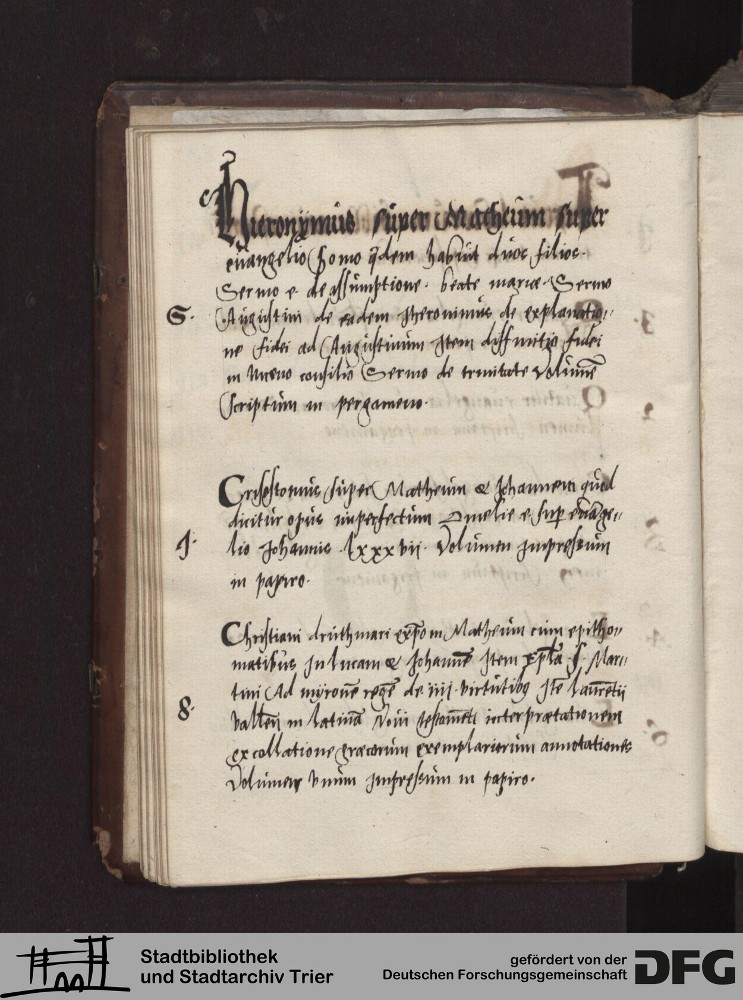 Hieronymus super Matheum super
euangelio Homo qdem habuit duos filios.
Sermo e. de assumptione. beate marie. Sermo
S. Augustini de eadem Jheronimus de explanatio-
ne fidei ad Augustinum Jtem diffinitio fidei
in niceno consilio Sermo de trinitate Volume
Scriptum in pergameno.
Crisostomus super Matheum & Johannem quod
dicitur opus imperfectum Omelie e super euange-
1. lio Johannis . lxxxvii. Volumen Jmpressum
in papiro.
Christiani druthmari expom Matheum cum epitho-
matibus Jn lucam & Johanne Jtem Epla S. Mar-
tini Ad myrone rege de iiii virtutibus Jte laurētii
8. vallen in latina Noui testameti interpretationem
ex collatione grecorum exemplariorum annotationes
Volumen vnum Jmpressum in papiro.
Stadtbibliothek
und Stadtarchiv Trier
gefördert von der
Deutschen Forschungsgemeinschaft
DFG